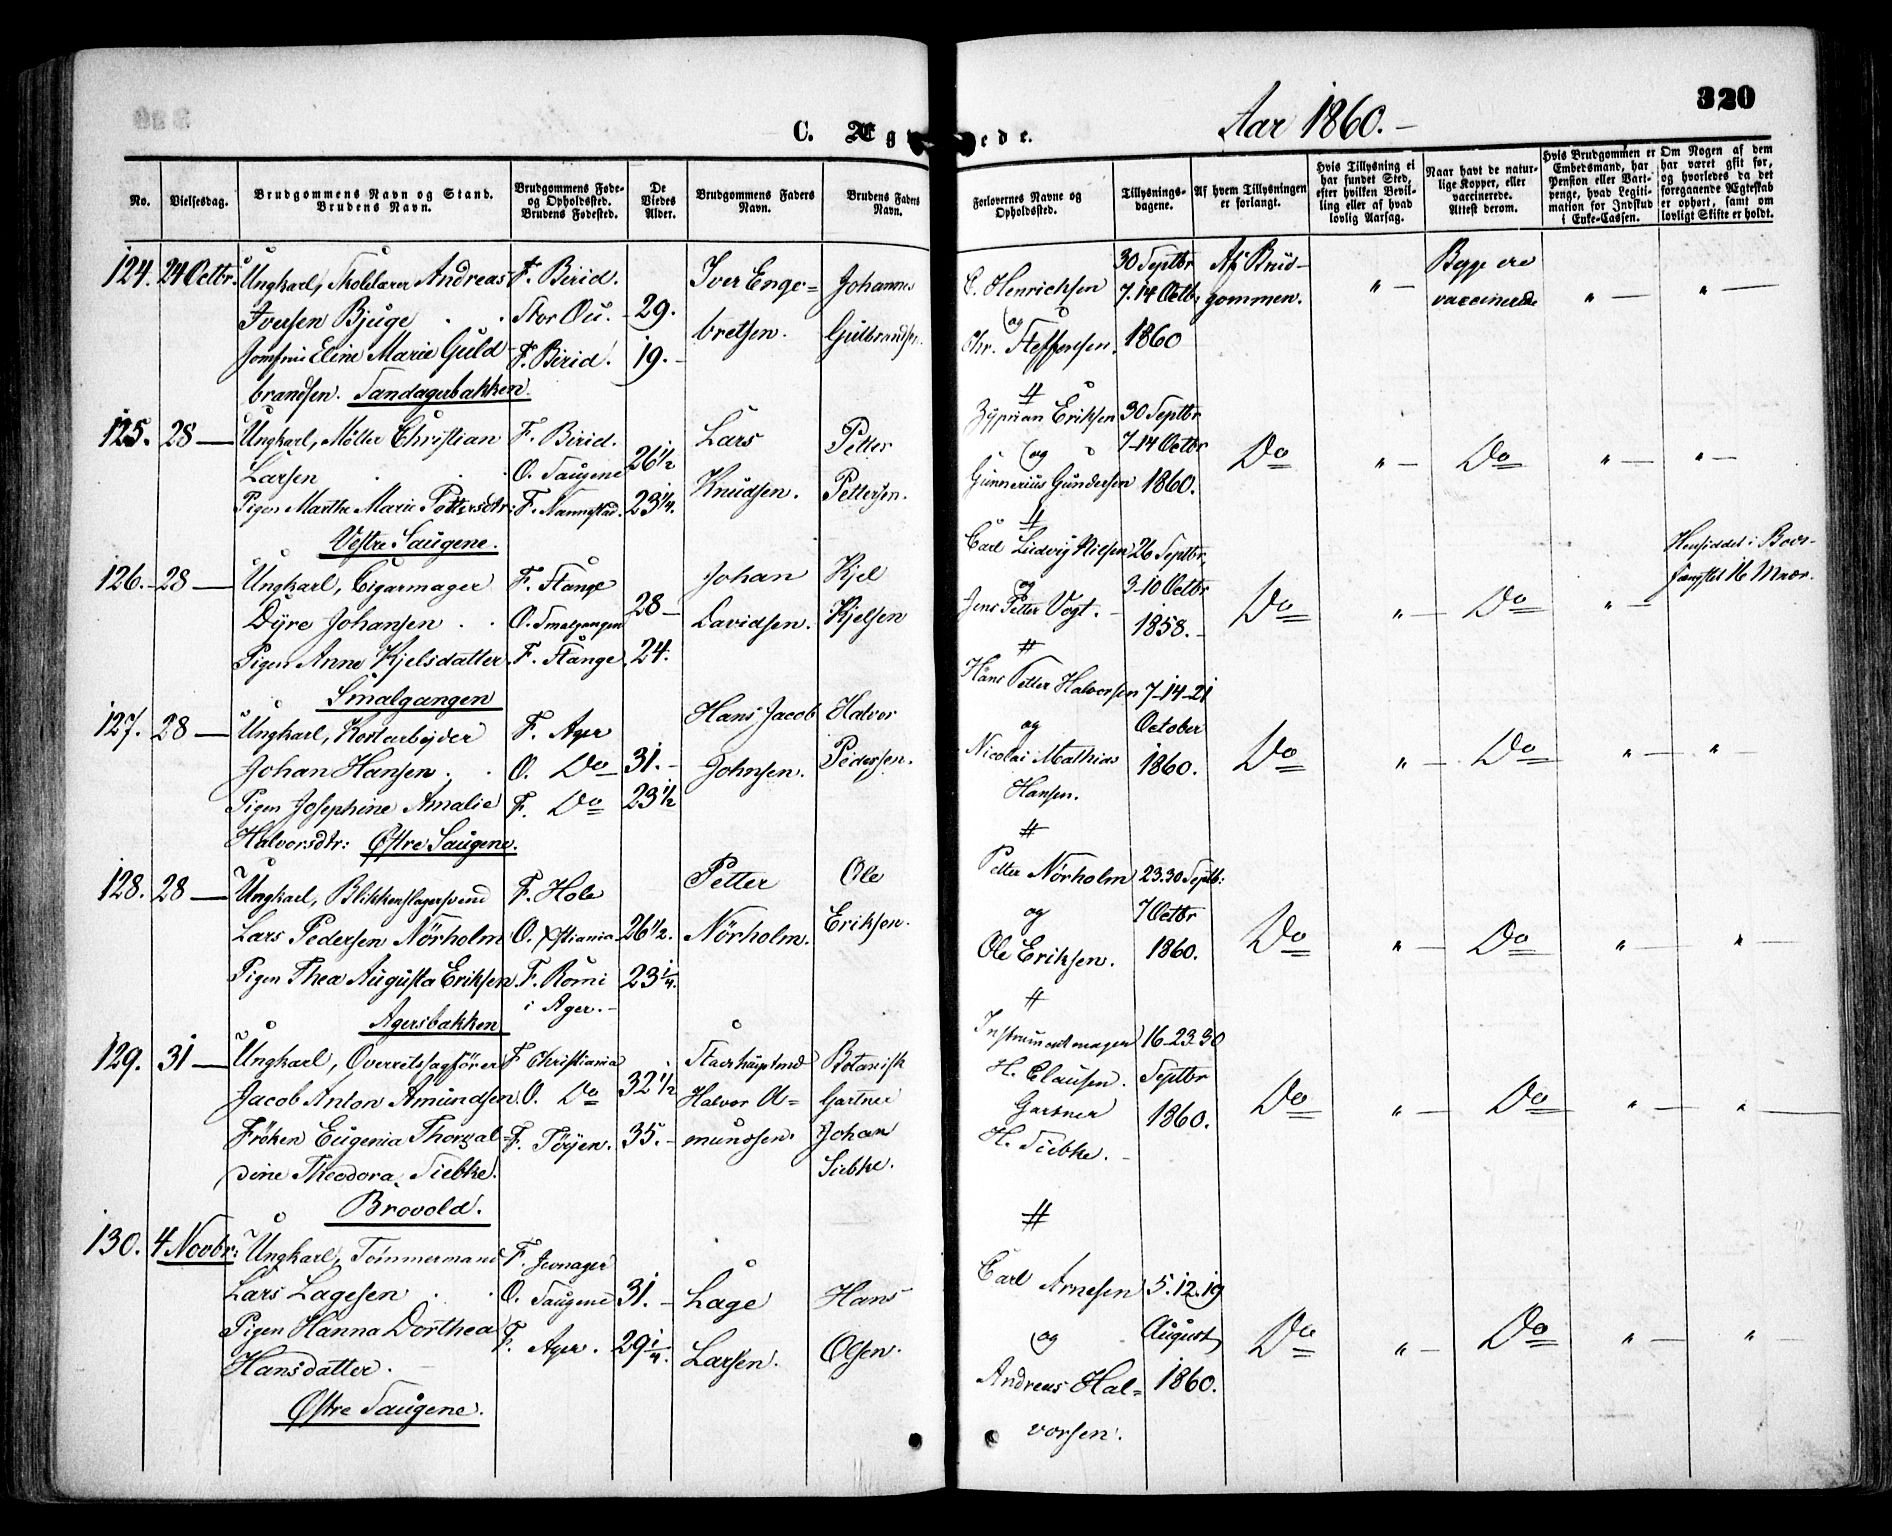 320
C. Ægt ede.
Aar 1860.-
No.
Vielsesdag.
Brudgommens Navn og Stand.
Brudens Navn.
Brudgommens Føde-
og Opholdssted.
Brudens Fødested.
De
Viedes
Alder.
Brudgommens Faders
Navn.
Brudens Faders
Navn.
Forlovernes Navne og
Opholdssted.
Tillysnings-
dagene.
Af hvem Tillysningen
er forlangt.
Hvis Tillysning ei
har fundet Sted,
efter hvilken Bevil-
ling eller af hvad
lovlig Aarsag.
Naar havt de natur-
lige Kopper, eller
vaccinerede.
Attest derom.
Hvis Brudgommen er
Embedsmand, har
Pension eller Vart-
penge, hvad Legiti-
mation for Indskud
i Enke-Cassen.
Om Nogen af dem
har været gift før,
og hvorledes da det
foregaaende Ægteskab
er ophørt, samt om
lovligt Skifte er holdt.
124. 24 Octbr. Ungkarl, Skolelærer Andreas F. Birid. Iver Enge= Johannes
Iversen Bjuge . . Stor Ou. - 29. bretsen. Gulbrandsen.
Jomfrue Eline Marie Guld- F. Birid. 19. -
brandsen. Sandagerbakken.
C. Henrichsen 30 Septbr Af Brud- " - Begge ere " - " -
og 7. 14 Octbr gommen. vaccinerede
Chr. Steffensen. 1860
#
125. 28 — Ungkarl, Møller Christian F. Birid. Lars Petter
Larsen . . O. Saugene 26 1/2 Knudsen. Pettersen.
Pigen Marthe Marie Pettersdtr: F. Nannestad. 23 1/4.
Vestre Saugene.
Zyprian Eriksen 30 Septbr
og 7-14 Octbr Do " - Do " - " -
Gunnerius Gundersen 1860.
#
126. - 28 — Ungkarl, Cigarmager F. Stange Johan Kjel
Dyre Johansen . . O. Smalgangen 28 - Davidsen. Kjelsen
Pigen Anne Kjelsdatter. F. Stange. 24.
Smalgangen
Carl Ludvig Nilsen 26 Septbr,
og 3-10 Octbr Do " - Do " -
Jens Petter Vogt. - 1858. -
#
127. 28 — Ungkarl, Kortarbejder F. Ager Hans Jacob Halvor
Johan Hansen . . O. Do 31. - Johnsen. Pedersen.
Pigen Josephine Amalie F. Do 23 1/2
Halvorsdtr: Østre Saugene.
Hans Petter Halvorsen 7-14-21
og October
Nicolai Mathias 1860. Do " - Do " - " -
Hansen.
#
128. 28 — Ungkarl, Blikkenslagersvend F. Hole Petter Ole
Lars Pedersen Nörholm O. Xstiania 26 1/2. Nörholm. Eriksen.
Pigen Thea Augusta Eriksen. F. Romi 23 1/4.
i Ager. -
Agersbakken
Petter Nörholm 23.30 Septb:
og 7 Octbr Do " - Do " - " -
Ole Eriksen. 1860.
#
129. 31 — Ungkarl, Overretssagförer F Christiania Botanisk
Jacob Anton Amundsen O. Do 32 1/2 Halvor A= Gartner
Fröken Eugenia Thorval= F. Töyen. 35. - mundsen. Johan
dine Theodora Siebke. Siebke.
Brovold.
Instrumentmager 16-23-30
H. Clausen. Septbr
Gartner 1860. Do " - Do " - " -
H. Siebke. -
#
130. 4 Novbr: Ungkarl, Tömmermand F. Jevnager
Lars Lagesen . . O. Saugene 31. - Lage Hans
Pigen Hanna Dorthea F. Ager. 29 1/4. Larsen. Olsen.
Hansdatter. -
Østre Saugene.
Carl Arnesen 5. 12. 19
og August Do " - Do " - " -
Andreas Hal= 1860.
vorsen.